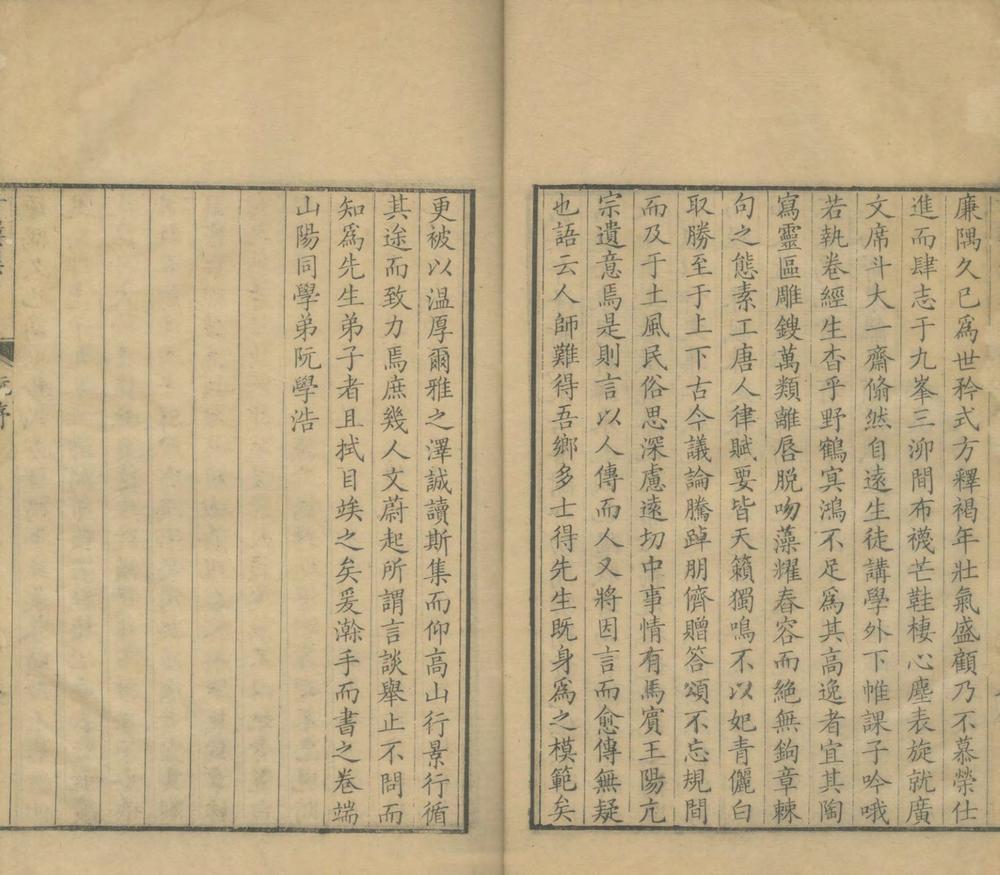 廉隅久已爲世矜式方釋褐年壯氣盛顧乃不慕榮仕
進而肆志于九峯三泖間布襪芒鞋棲心塵表旋就廣
文席斗大一齋翛然自遠生徒講學外下帷課子吟哦
若執卷經生杳乎野鶴冥鴻不足爲其高逸者宜其陶
寫靈區雕鎪萬類離唇脫吻藻耀春容而絶無鉤章棘
句之態素工唐人律賦要皆天籟獨鳴不以妃青儷白
取勝至于上下古今議論騰踔朋儕贈答頌不忘規間
而及于土風民俗思深慮遠切中事情有馬賓王陽亢
宗遺意焉是則言以人傳而人又將因言而愈傳無疑
也語云人師難得吾鄉多士得先生既身爲之模範矣
更被以温厚爾雅之澤誠讀斯集而仰高山行景行循
其途而致力焉庶幾人文蔚起所謂言談舉止不問而
知爲先生弟子者且拭目竢之矣爰澣手而書之卷端
山陽同學弟阮學浩
阮序